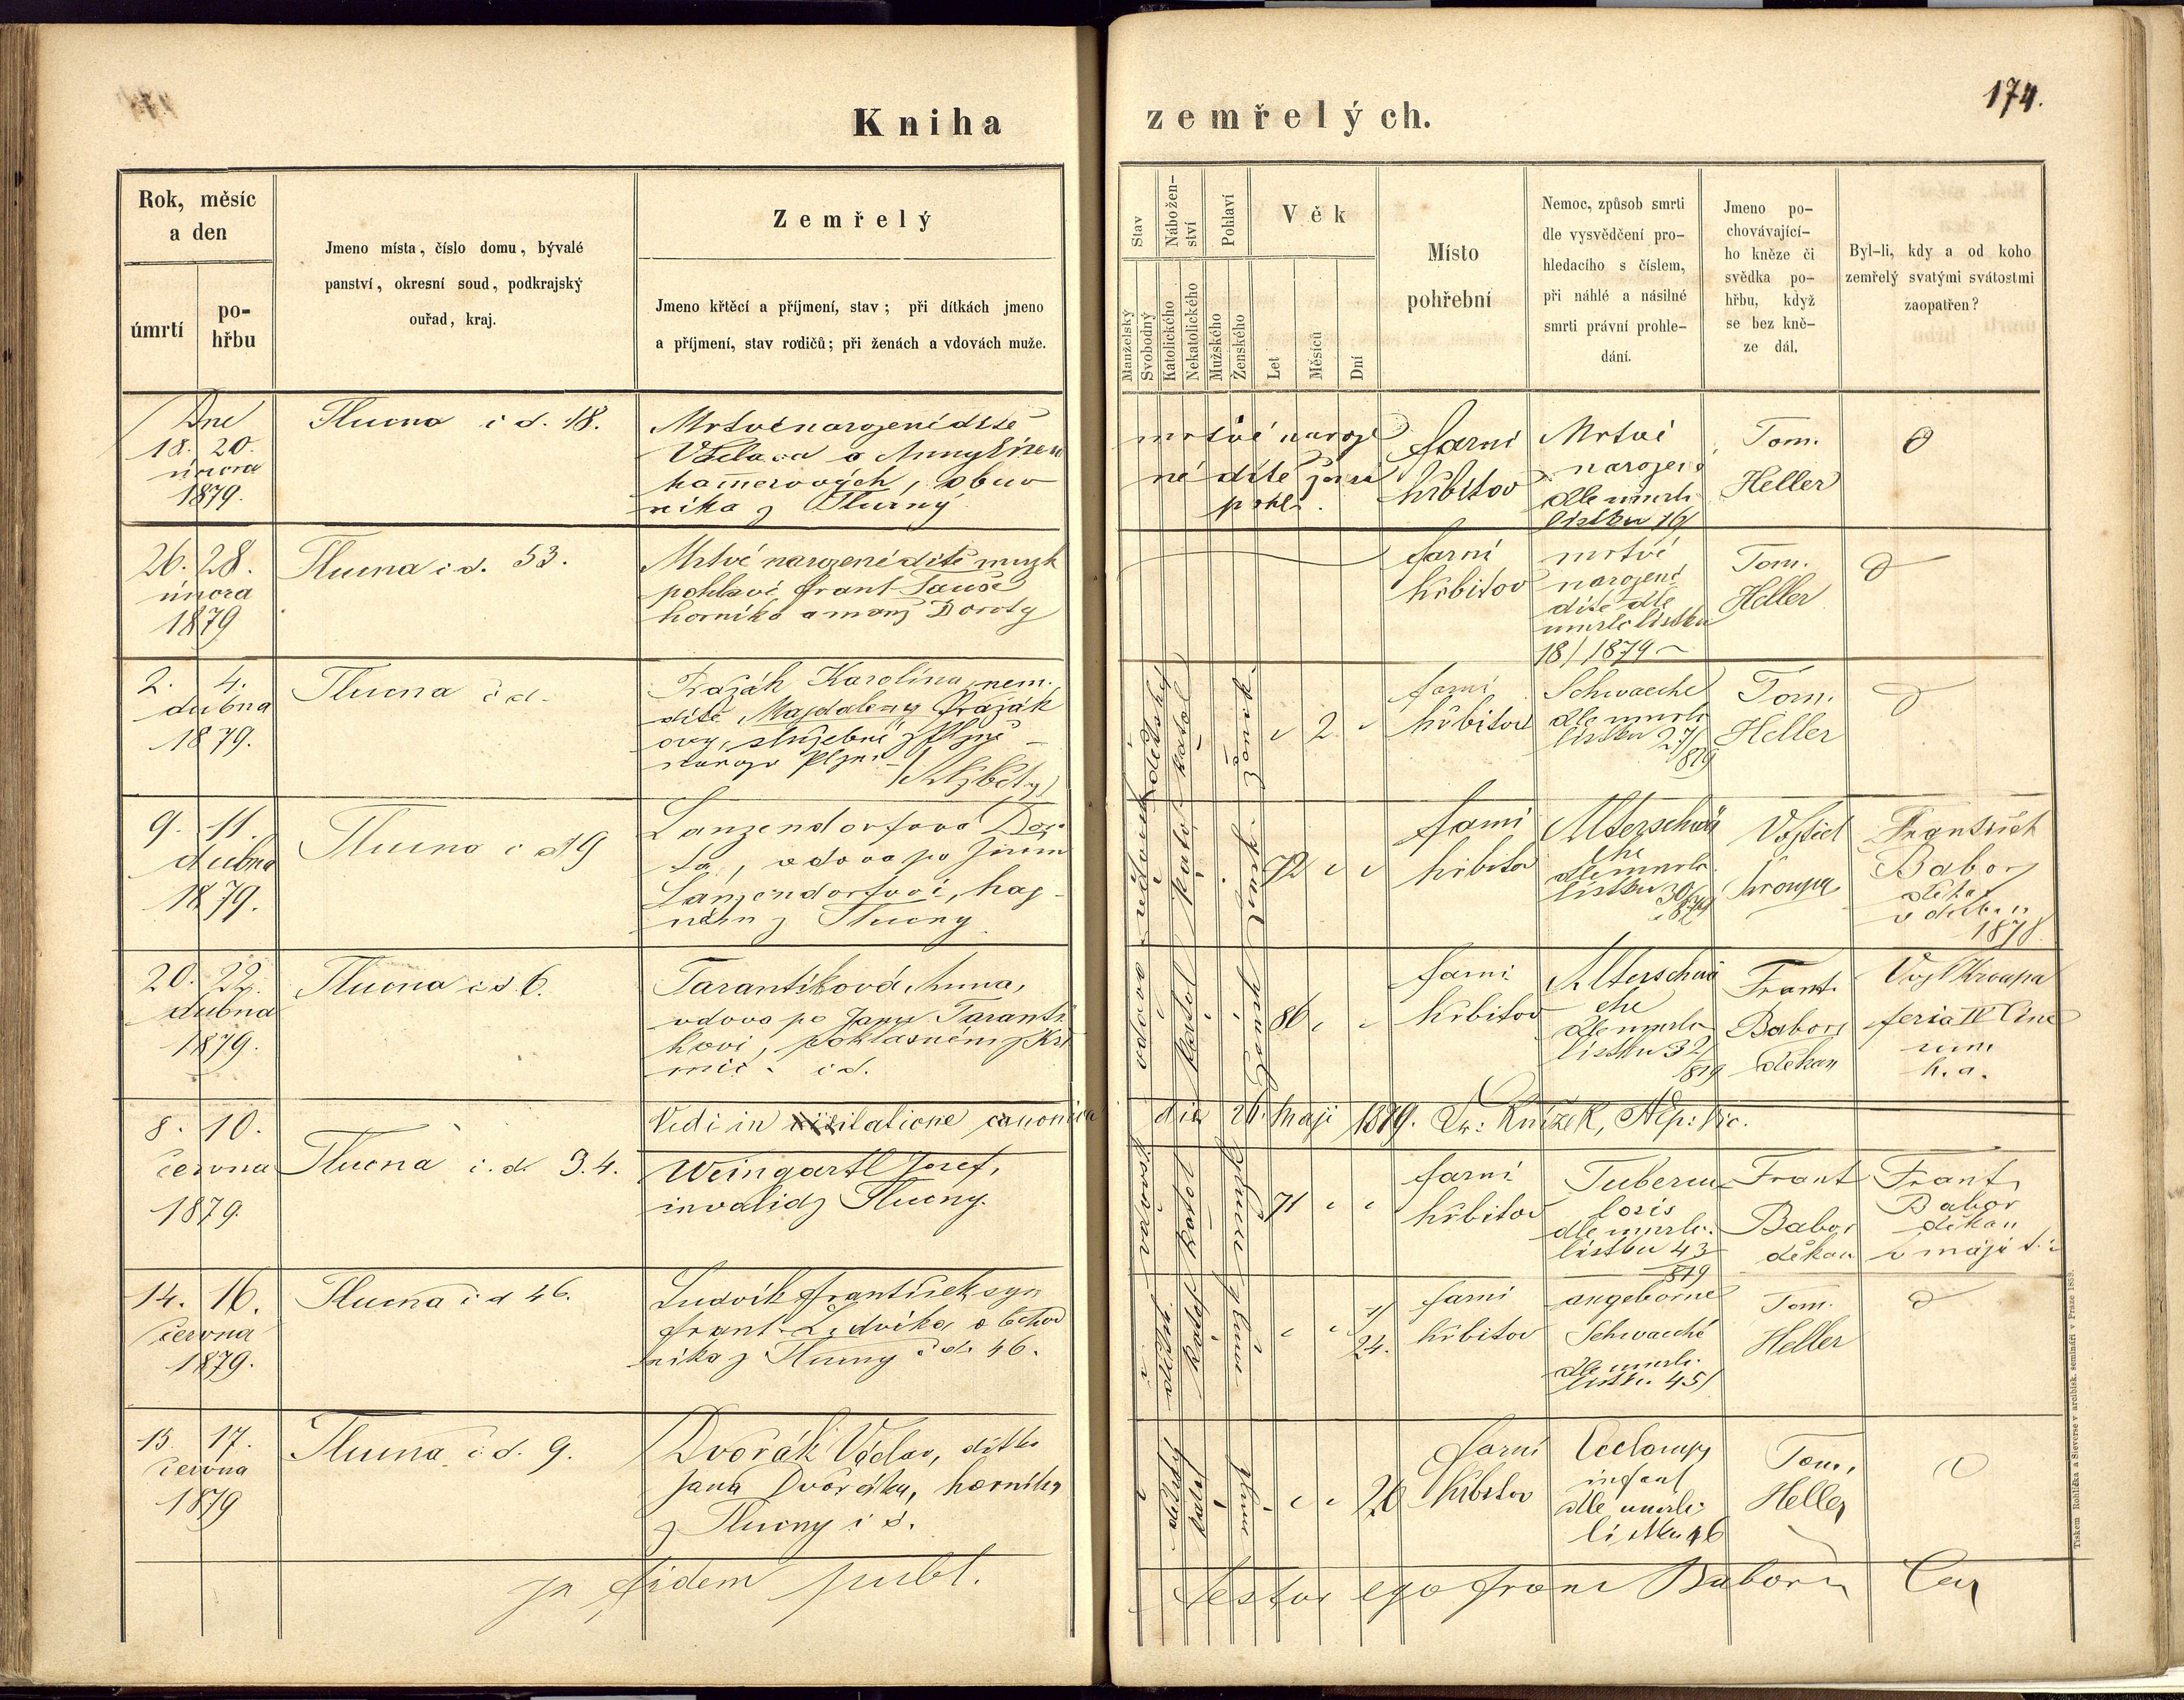 174.
Kniha zemřelých.
Rok, měsíc
a den
úmrtí
po-
hřbu
Jmeno místa, číslo domu, bývalé
panství, okresní soud, podkrajský
ouřad, kraj.
Zemřelý
Jmeno křtěcí a příjmení, stav; při dítkách jmeno
a příjmení, stav rodičů; při ženách a vdovách muže.
Stav
Manželský
Svobodný
Nábožen-
ství
Katolického
Nekatolického
Pohlaví
Mužského
Ženského
Věk
Let
Měsíců
Dní
Místo
pohřební
Nemoc, způsob smrti
dle vysvědčení pro-
hledacího s číslem,
při náhlé a násilné
smrti právní prohle-
dání.
Jmeno po-
chovávající-
ho kněze či
svědka po-
hřbu, když
se bez kně-
ze dál.
Byl-li, kdy a od koho
zemřelý svatými svátostmi
zaopatřen?
Dne
18. 20.
února
1879.
Tlucna č d. 18.
Mrtvé narozené dítě
Václava a Anny
obuv
níka z Tlucny
mrtvé naroze
né dítě
farní
hřbitov
Mrtvé
narozen
dle umrlč
lístku
Tom.
Heller
26. 28.
února
1879
Tlucna č d. 53.
Mrtvé narozené dítě muzk
pohlaví Frant Tauše
horníka a manž Doroty
farní
hřbitov
mrtvé
narozené
dítě dle
umrlč lístku
18/1879
Tom.
Heller
2. 4.
dubna
1879.
Tlucna č d.
Pražák Karolina, nem.
dítě Majdaleny Pražák
ovy, služebné z Plzně
(Alžběty)
ženské
2
farní
hřbitov
Schwaeche
dle umrlč
lístku 27/
879
Tom.
Heller
9. 11.
dubna
1879.
Tlucna č d 9
Lanzendorfova Doro
ta, vdova po
Lanzendorfovi, haj
ném z Tlucny
72
farní
hřbitov
Alterschwä
che
dle umrlč
lístku 30/
879
Vojtěch
Kroupa
František
Babor
děkan
1878
20. 22.
dubna
1879.
Tlucna č d 6.
Tarantíková Anna,
vdova po Janu Taranti
kovi,
vdova
katol
86
farní
hřbitov
Alterschwä
che
dle umrlč
lístku 32/
879
Frant.
Babor
děkan
Vojt Kroupa
feria IV Cine
rum
h. a.
Vidi in visitatione canonica die 26. Maji 1879.
8. 10.
června
1879.
Tlucna č. d. 34.
Weingartl Josef,
invalid z Tlucny.
katol
71
farní
hřbitov
Tubercu
losis
dle umrlč.
lístku 43
879
Frant
Babor
děkan
Frant.
Babor
děkan
14. 16.
června
1879.
Tlucna č d 46.
Ludvík František syn
Frant. Ludvíka obchod
níka z Tlucny č d. 46.
24.
farní
hřbitov
angeborne
Schwaeche
dle umrlč.
lístku 45/
Tom.
Heller
15. 17.
června
1879
Tlucna č. d. 9.
Dvořák Václav, dítko
Jana Dvořáka, horníka
z Tlucny
katol
26
farní
hřbitov
infant
dle umrlč
lístku 46
Tom.
Heller
In fidem publ. testor ego Franc Babor
Tiskem Rohlíčka a Sieverse v arcibisk. semináři v Praze 1859.